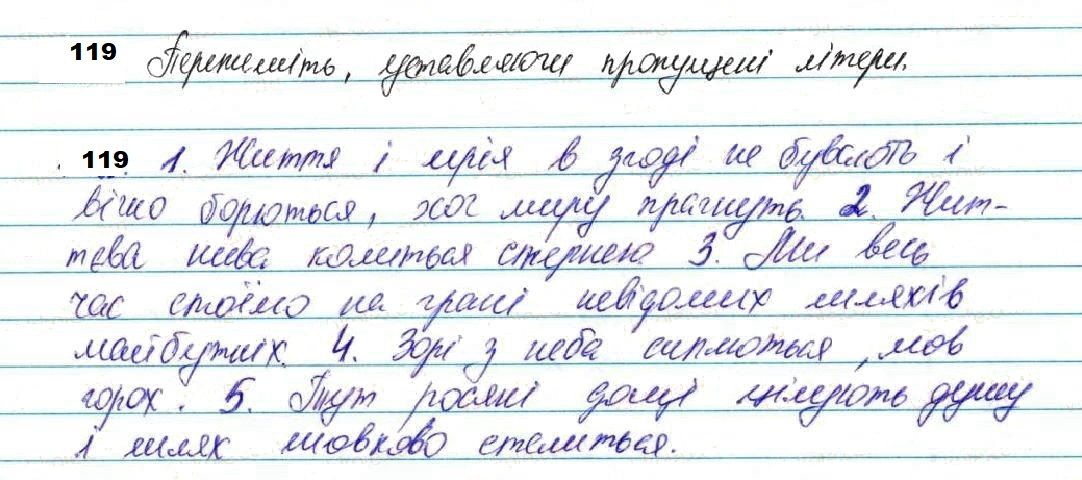 119 Перепишіть, уставляючи пропущені літери.
119 1. Життя і мрія в згоді не бувають і
вічно борються, хоч миру прагнуть. 2. Жит-
тєва нива колиться стернею 3. Ми весь
час стоїмо на грані невідомих шляхів
майбутніх. 4. Зорі з неба сиплються, мов
горох. 5. Тут росяні дощі цілують душу
і шлях шовково стелиться.